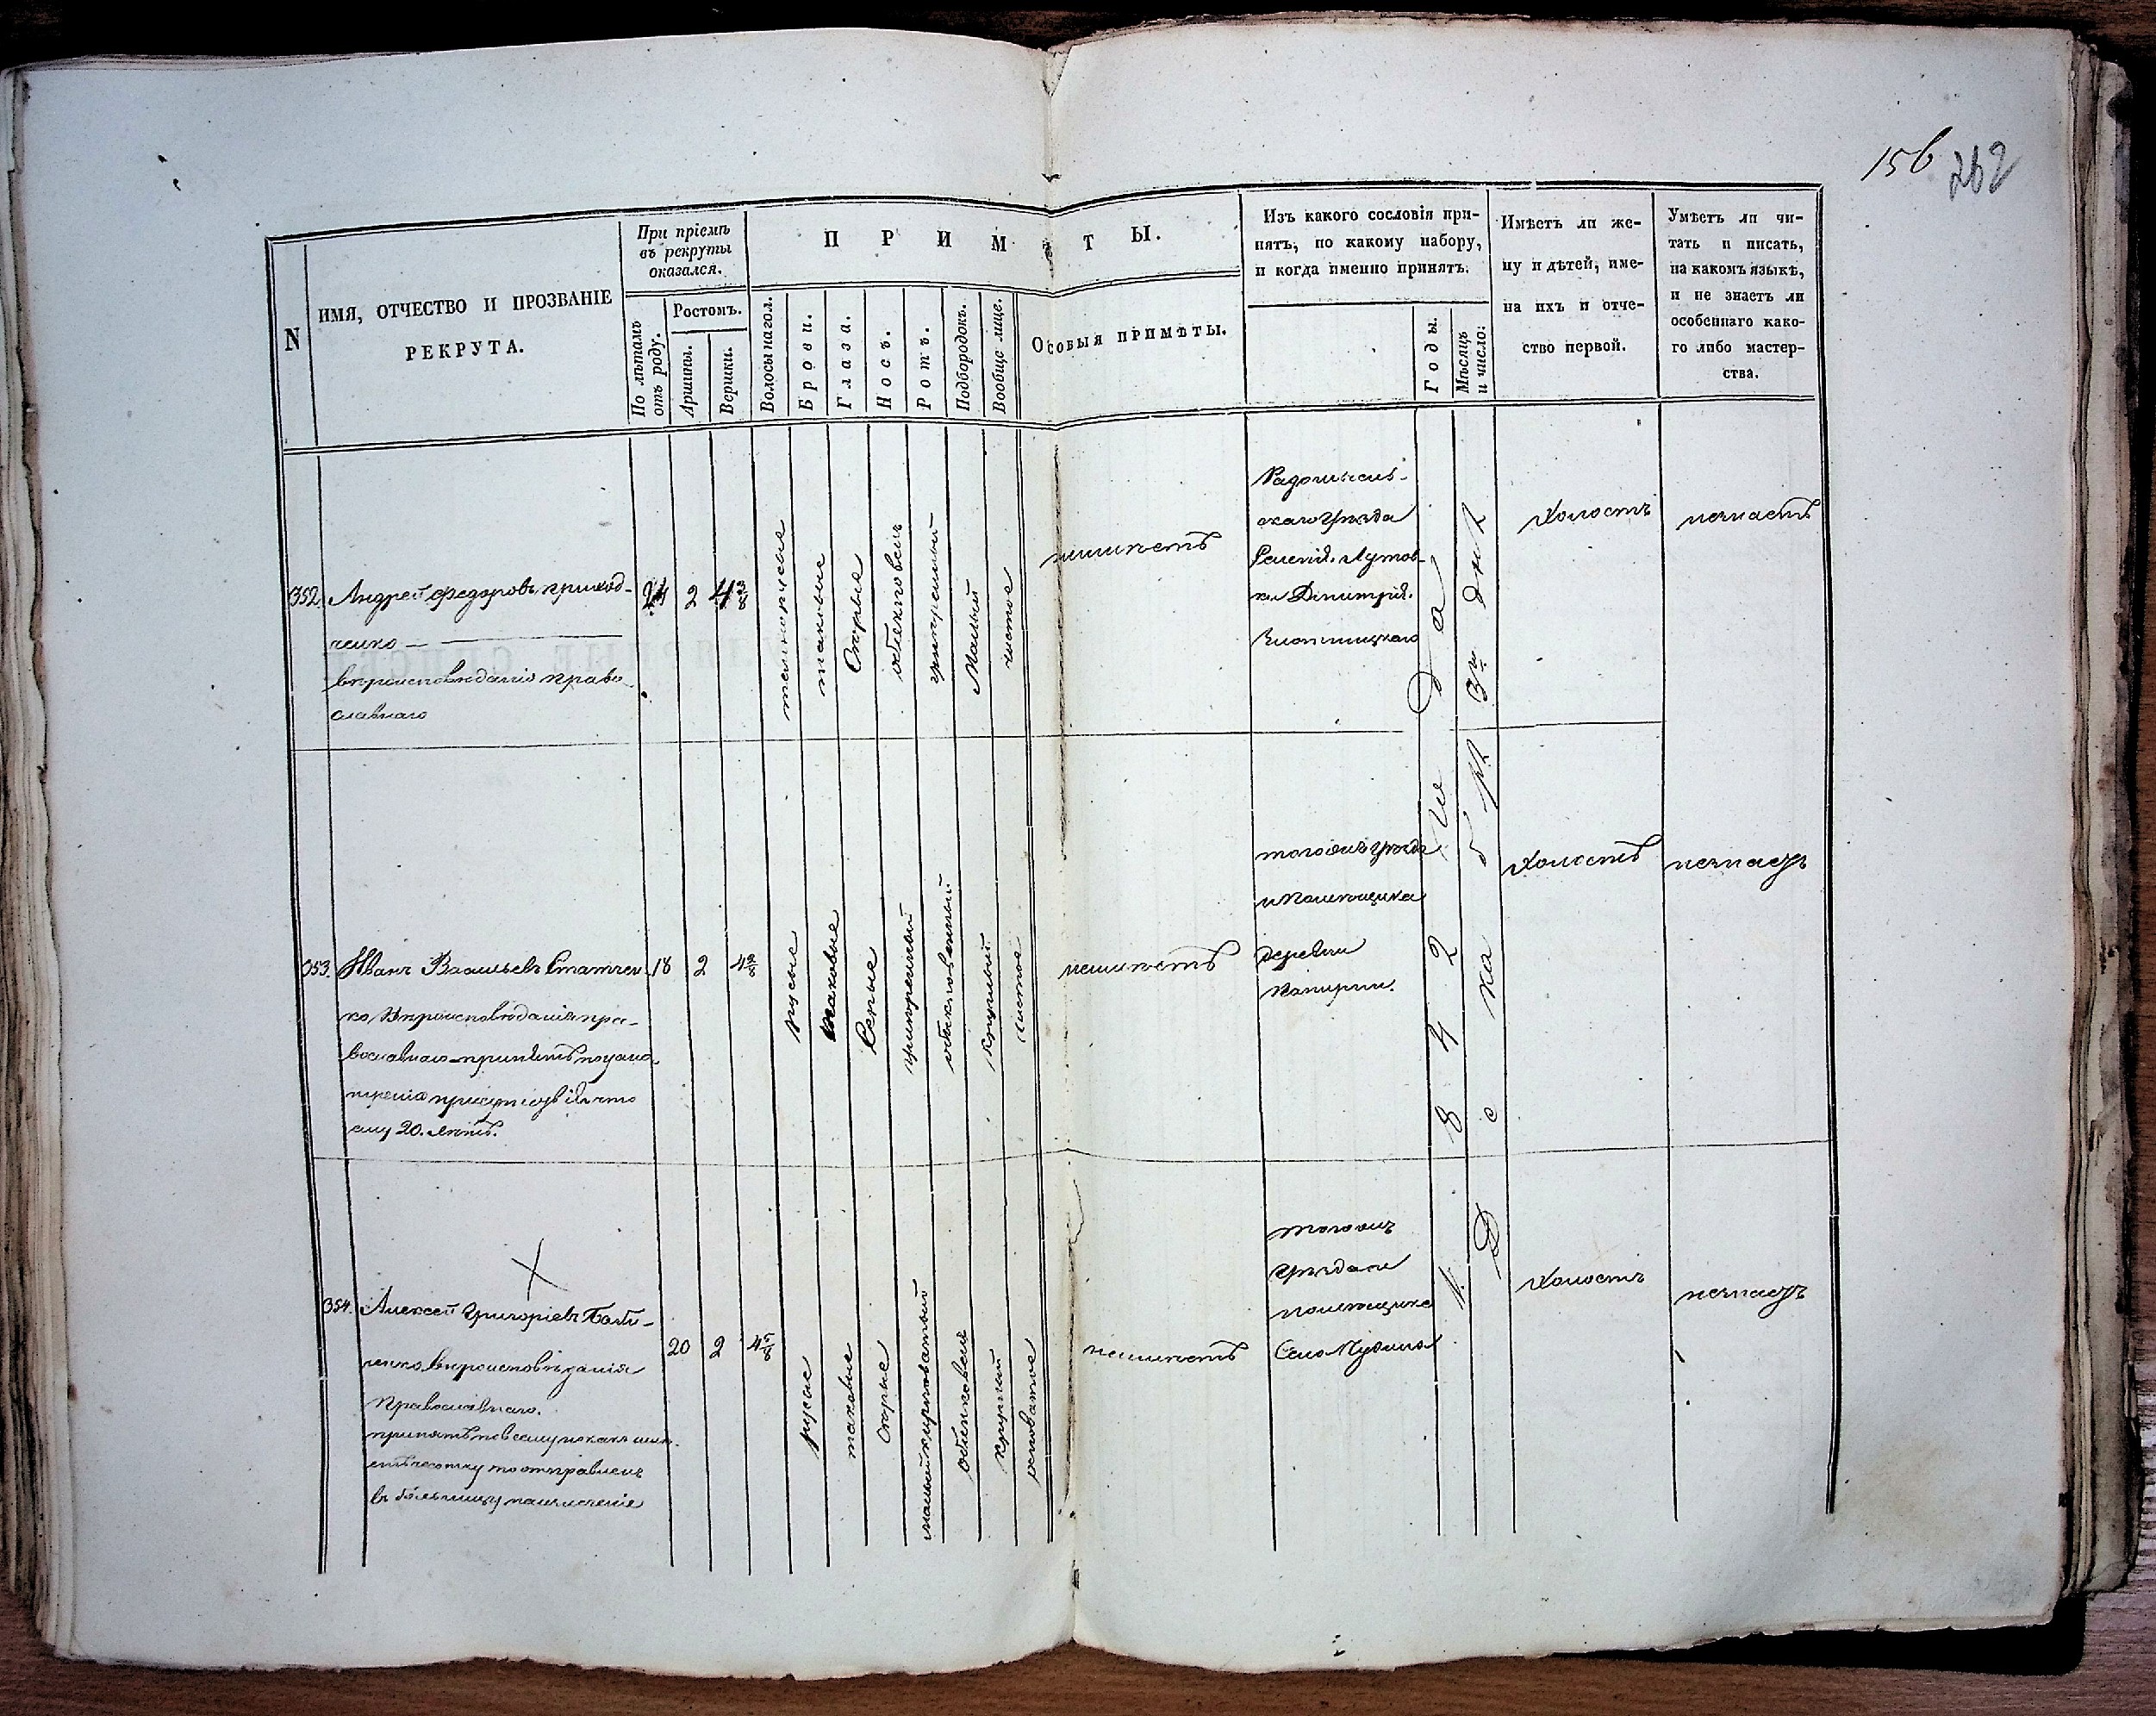 156 262
N
ИМЯ, ОТЧЕСТВО И ПРОЗВАНІЕ
РЕКРУТА.
При пріемѣ
въ рекруты
оказался.
По лѣтамъ
отъ роду.
Ростомъ.
Аршины.
Вершки.
П Р И М Ѣ Т Ы.
Волосы на гол.
Брови.
Глаза.
Носъ.
Ротъ.
Подбородокъ.
Вообще лице.
Особыя примѣты.
Изъ какого сословія при-
нятъ, по какому набору,
и когда именно принятъ.
Годы.
Мѣсяцъ
и число.
Имѣетъ ли же-
ну и дѣтей, име-
на ихъ и отче-
ство первой.
Умѣетъ ли чи-
тать и писать,
на какомъ языкѣ,
и не знаетъ ли
особеннаго како-
го либо мастер-
ства.
352. Андрей Федоровъ Приход-
ченко
вѣроисповѣданія право-
славнаго
24 2 4 3/8
темнорусые
таковые
Сѣрые
обыкновенъ
умѣренный
Малый
чистое
неимѣетъ
скаго Уѣзда
Дмитрія
Холостъ
незнаетъ
353. Иванъ Васильевъ Статчен-
ко Вѣроисповѣданія пра-
вославнаго принятъ по усмо-
трѣнія присутствія что
ему 20. лѣтъ.
18 2 4 2/8
русые
таковые
Сѣрые
умѣренный
обыкновенный
круглый
чистое
неимѣетъ
тогожъ Уѣзда
и Помѣщика
деревни
Холостъ
незнаетъ
354. Алексей Григоріевъ
вѣроисповѣданія
Православнаго.
въ больницу на излеченіе
20 2 4 5/8
русые
таковые
Сѣрые
обыкновенъ
круглый
рѣповатое
неимѣетъ
тогожъ
Уѣзда и
помѣщика
Село
Холостъ
незнаетъ
1842 года
Декабря 3го дня